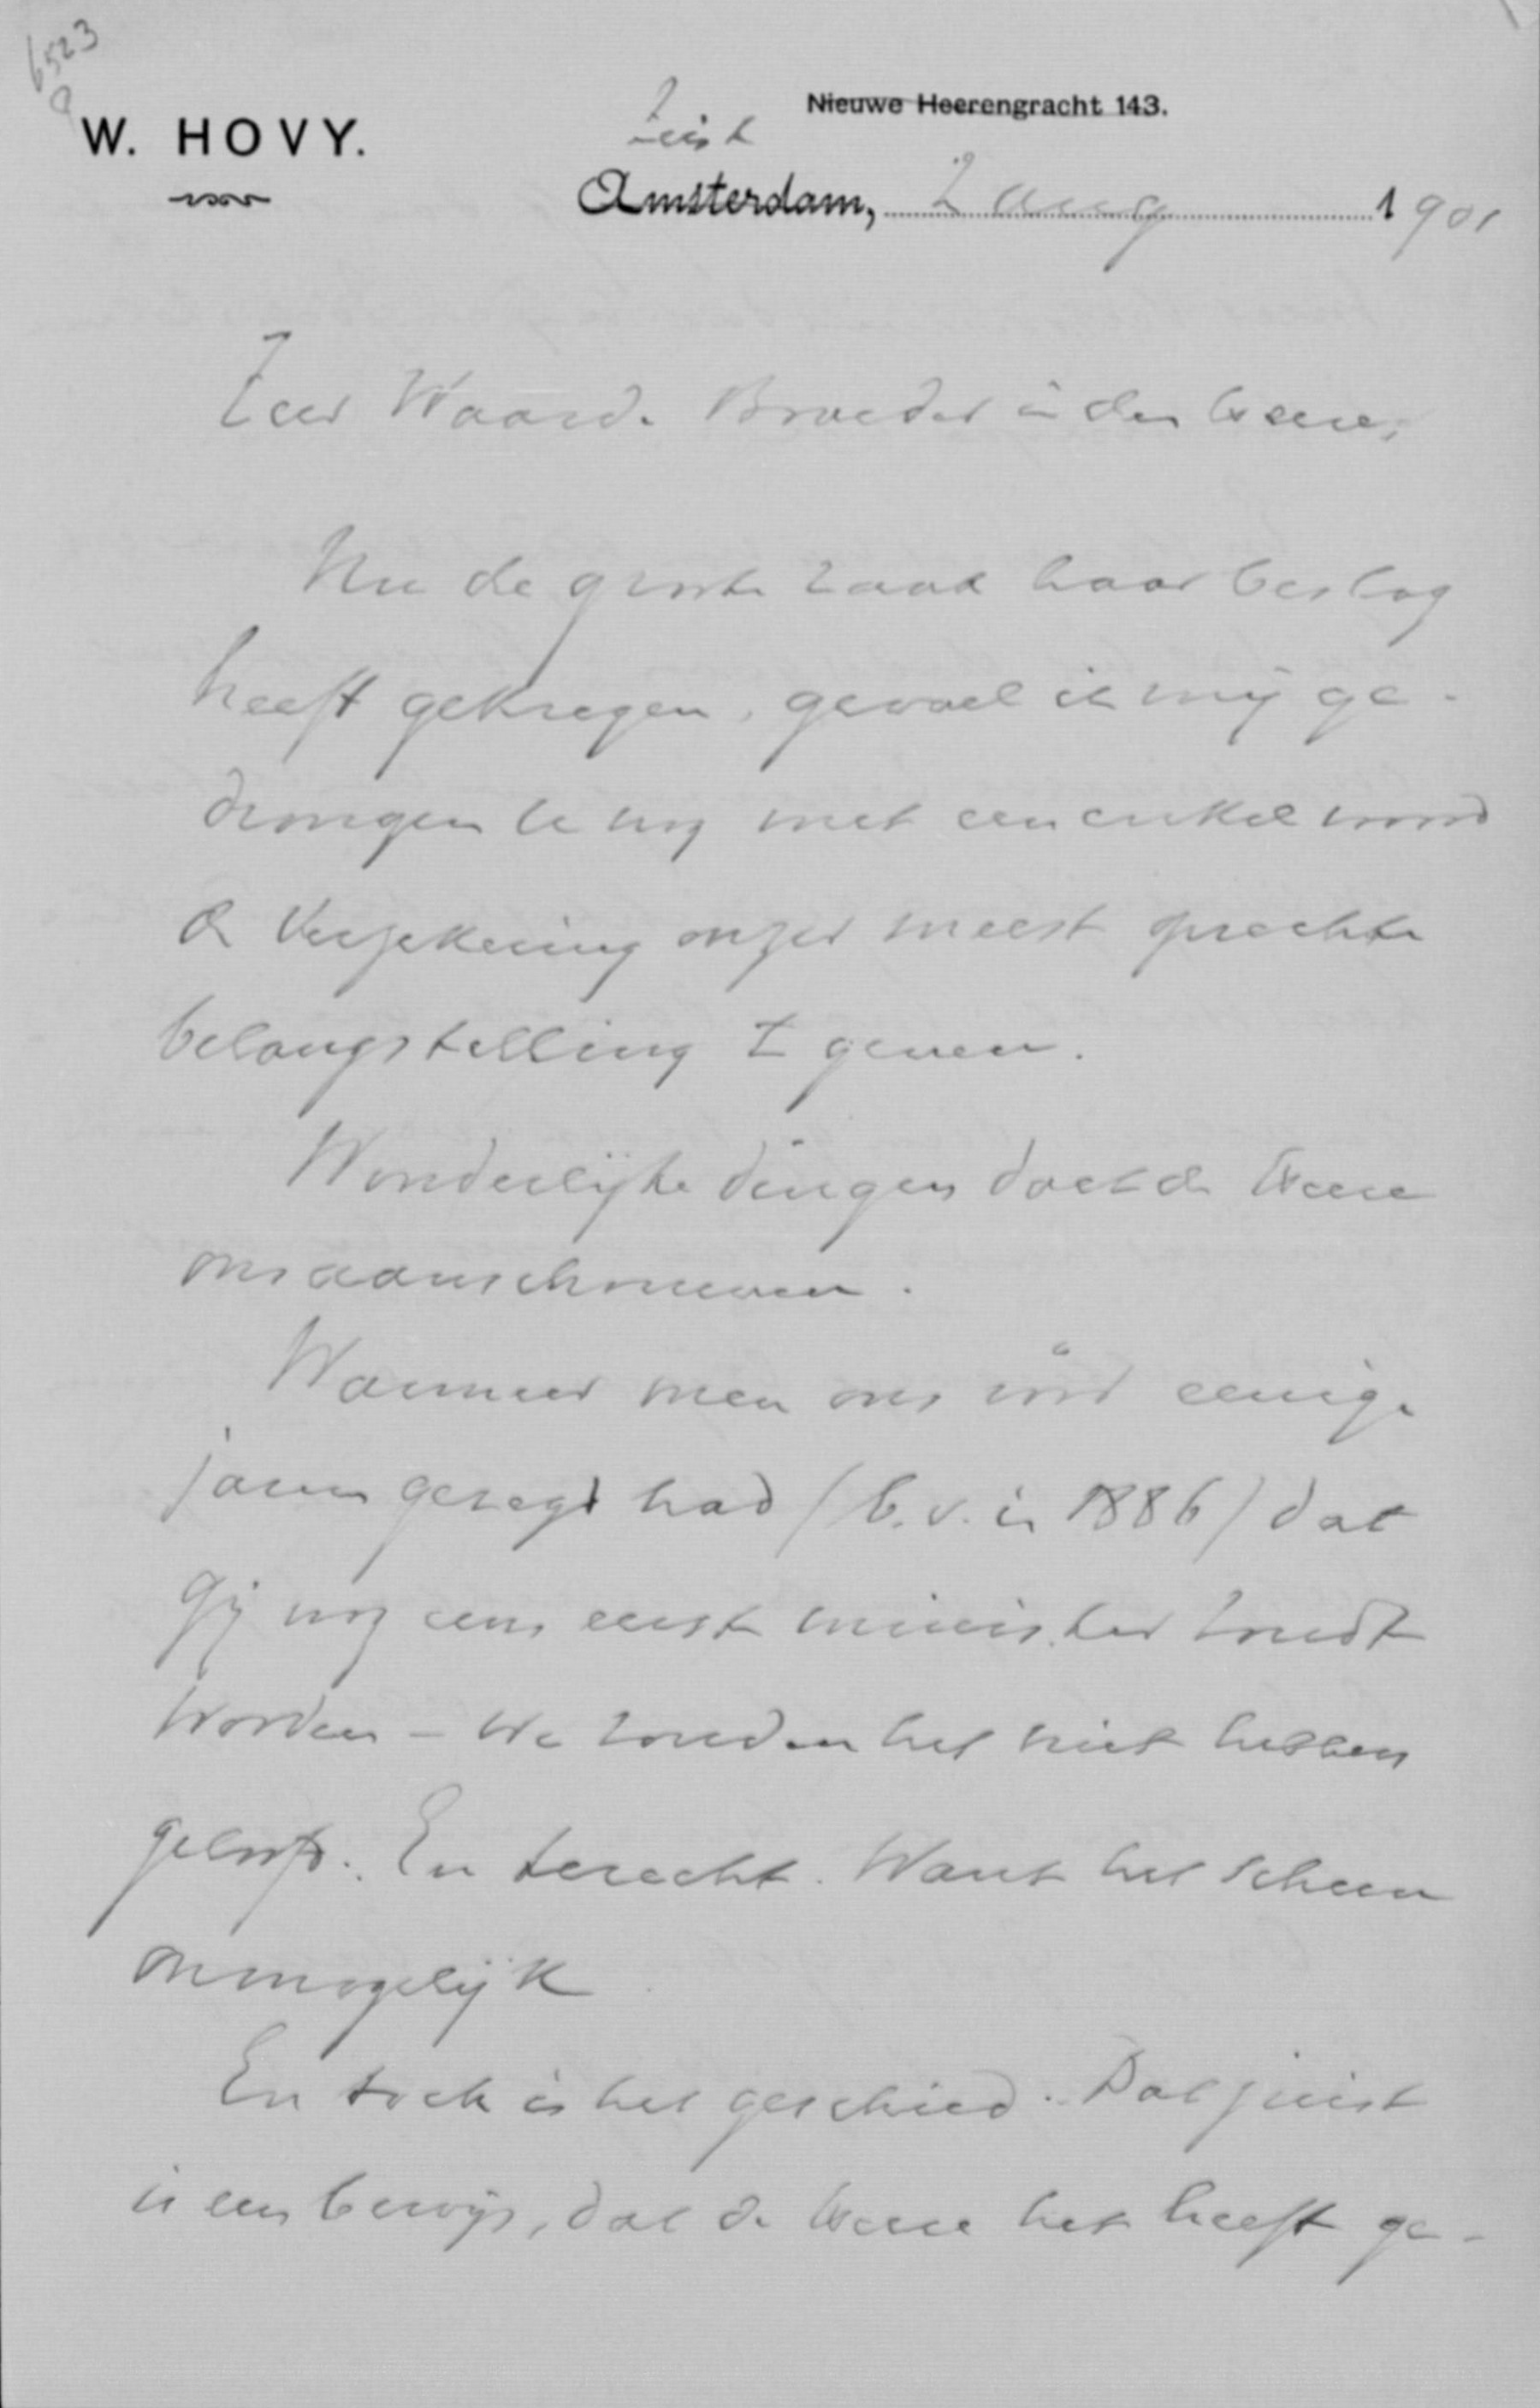 6523
W. HOVY.
Nieuwe Heerengracht 143.
Zeist
Amsterdam, 2 Aug 1901
Zeer Waarde Broeder in den Heere,
Nu de groote zaak haar beslag
heeft gekregen, gevoel ik mij ge-
drongen U nog met een enkel woord
de Verzekering onzer meest oprechte
belangstelling te geven.
Wonderlijke dingen doet de Heere
ons aanschouwen.
Wanneer men ons vóór eenige
jaren gezegd had (b.v. in 1886) dat
Gij nog eens eerste minister zoudt
worden – We zouden het niet hebben
geloofd. En terecht. Want het scheen
onmogelijk
En toch is het geschied. Dat juist
is een bewijs, dat de Heere het heeft ge-